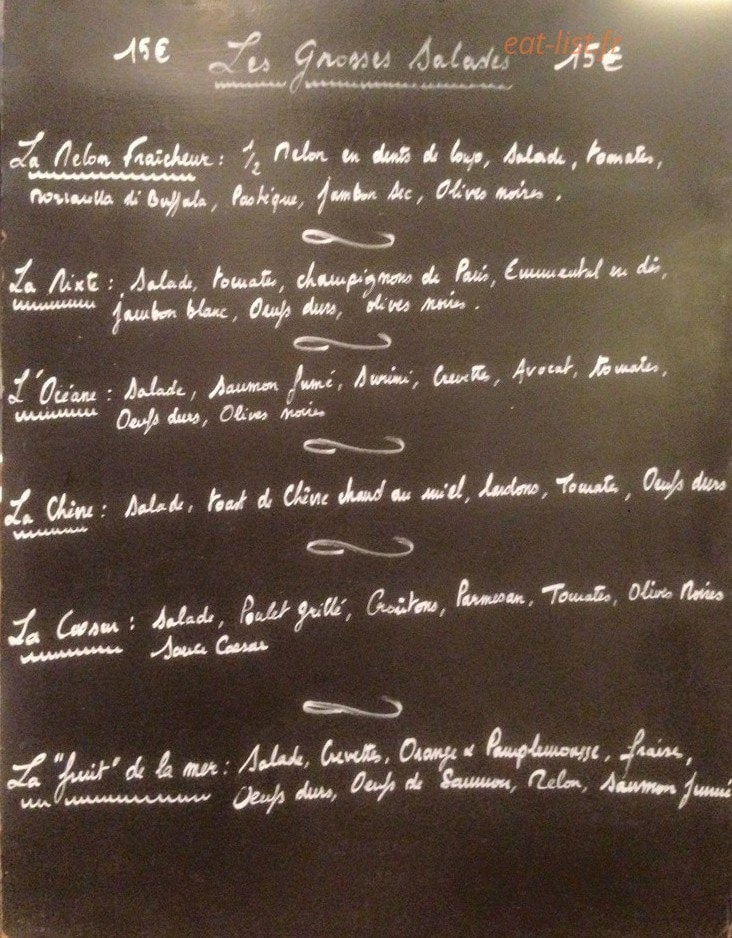 15€ Les Grosses Salades 15€
eat-list.fr
La Melon Fraîcheur : 1/2 Melon en dents de loup, Salade, tomates,
Mozzarella di Buffala, Pastèque, Jambon sec, Olives noires.
La Mixte : Salade, tomates, champignons de Paris, Emmental en dés,
Jambon blanc, Oeufs durs, olives noires.
L'Océane : Salade, Saumon fumé, Surimi, Crevettes, Avocat, tomates,
Oeufs durs, Olives noires
La Chèvre : Salade, toast de Chèvre chaud au miel, lardons, Tomates, Oeufs durs
La Caesar : Salade, Poulet grillé, Croûtons, Parmesan, Tomates, Olives Noires
Sauce Caesar
La "fruit" de la mer : Salade, Crevettes, Orange & Pamplemousse, fraise,
Oeufs durs, Oeufs de Saumon, Melon, Saumon fumé